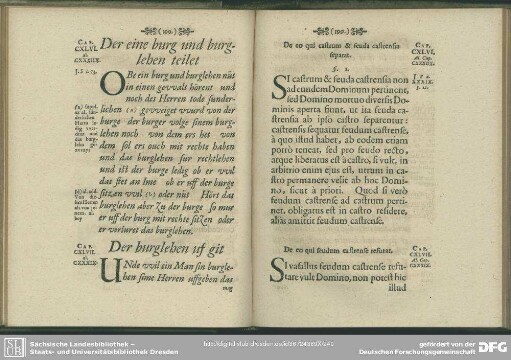 Der eine burg und burg-
lehen teilet
CAP.
CXLVI.
Al.
CXXXIIX.
OBe ein burg und burglehen nüt
in einen gewalt hörent und
noch des Herren tode sunder-
lichen (a) geweiget wurd von der
burge der burger volge sinem burg-
lehen noch von dem ers het von
dem sol ers ouch mit rechte haben
und das burglehen fur rechtlehen
und ist der burge ledig ob er wil
das stet an Ime ob er uff der burge
sitzen wil (b) oder nüt Hört das
burglehen aber zu der burge so mus
er uff der burg mit rechte sitzen oder
er verlurst das burglehen.
Der burglehen uf git
CAP.
CXLVII.
Al.
CXXXIX.
UNde wil ein Man sin burgle-
hen sime Herren uffgeben das
mag
De eo qui castrum & feuda castrensia
separat.
CAP.
CXLVI.
Al. Cap.
§. 1.
SI castrum & feuda castrensia non
ad eundem Dominum pertinent,
sed Domino mortuo diversis Do-
minis aperta sunt, ut ita feuda ca-
strensia ab ipso castro separentur:
castrensis sequatur feudum castrense,
à quo istud habet, ab eodem etiam
porrò teneat, sed pro feudo recto,
atque liberatus est à castro, si vult, in
arbitrio enim ejus est, utrum in ca-
stro permanere velit ab hoc Domi-
no, sicut à priori. Quod si verò
feudum castrense ad castrum perti-
net, obligatus est in castro residere,
aliàs amittit feudum castrense.
De eo qui feudum castrense refutat.
CAP.
CXLVII.
Al. Cap.
CXXXIX.
SI vasallus feudum castrense refu-
tare vult Domino, non potest hic
illud
Sächsische Landesbibliothek –
Staats- und Universitätsbibliothek Dresden
gefördert von der
Deutschen Forschungsgemeinschaft
DFG